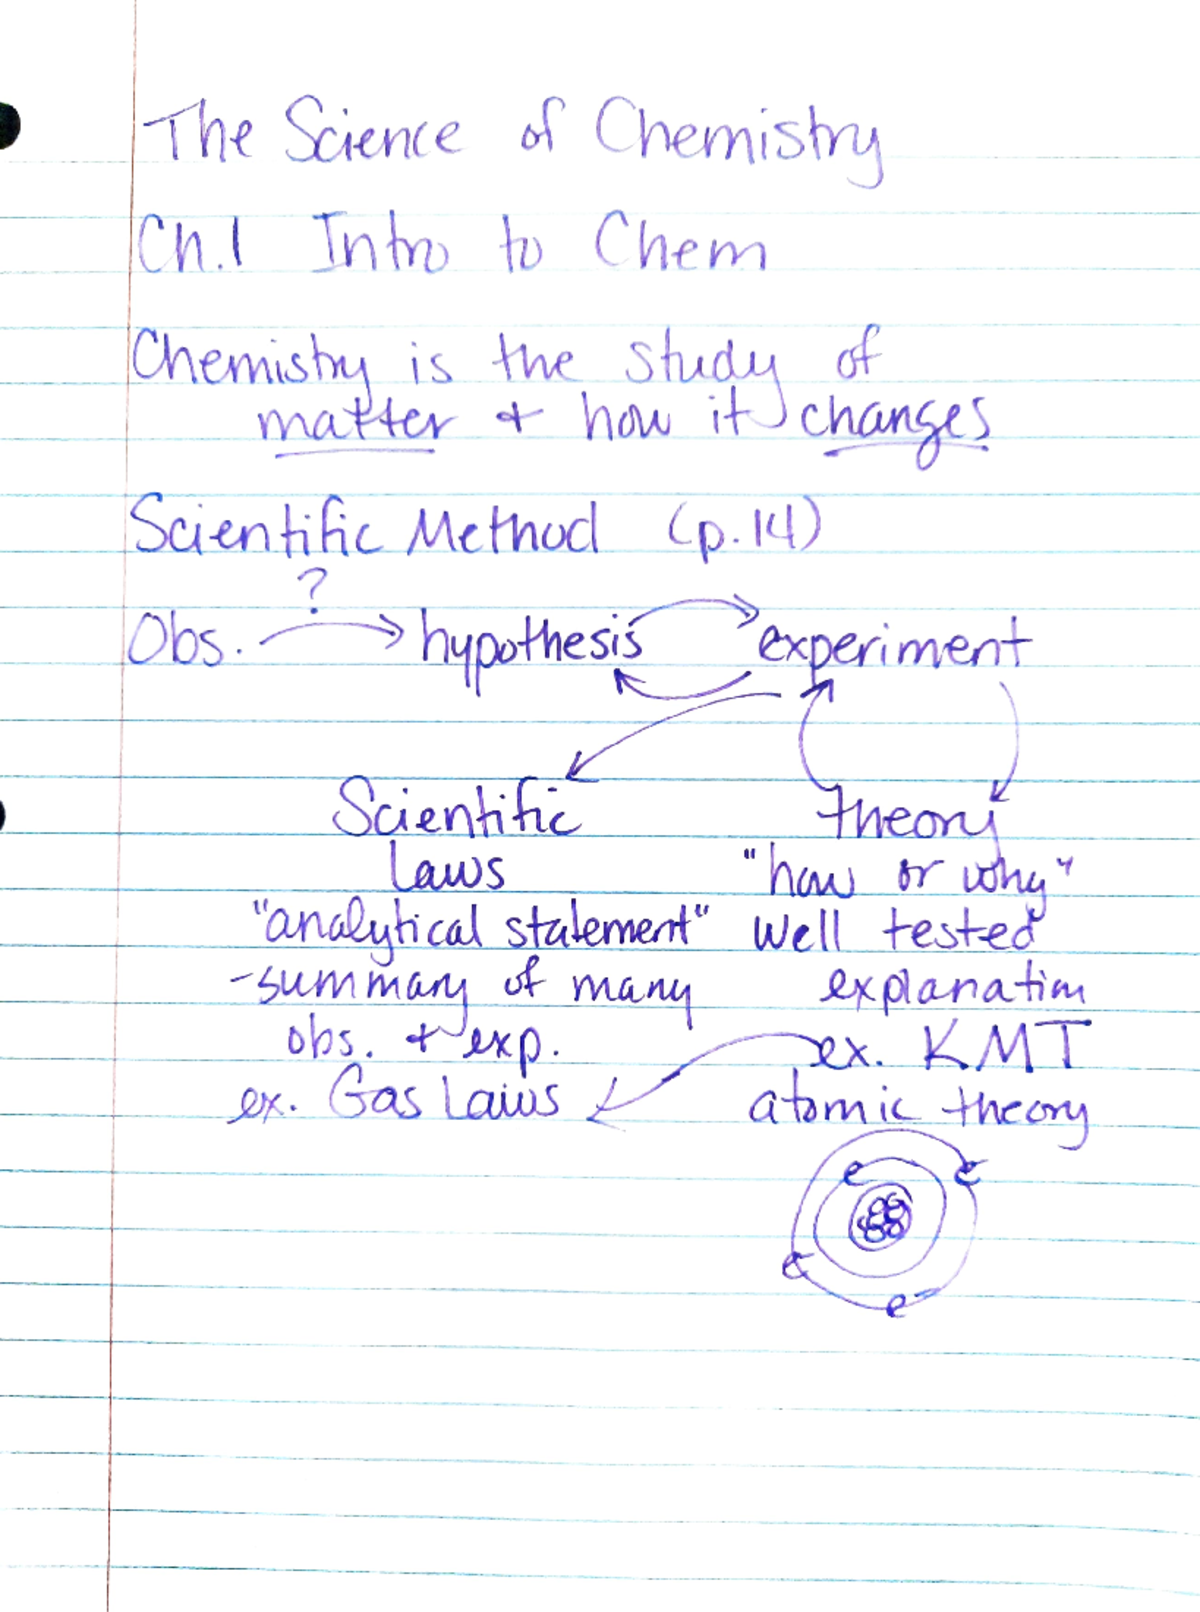 The Science of Chemistry
Ch.1 Intro to Chem
Chemistry is the study of
matter + how it changes
Scientific Method (p.14)
?
Obs. hypothesis experiment
Scientific
Laws
"analytical statement"
-summary of many
obs. + exp.
ex. Gas Laws
theory
"how or why"
well tested
explanation
ex. KMT
atomic theory
e e
e
e-